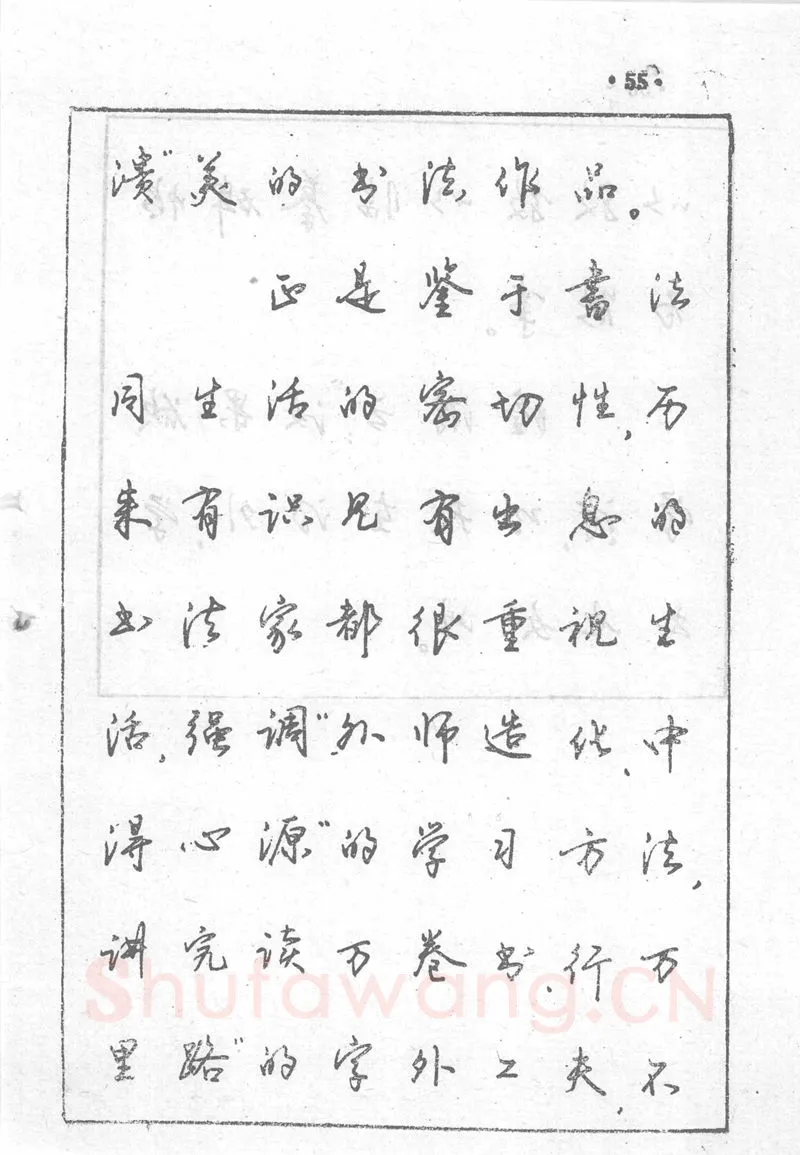 ·55·
溃"美的书法作品。
正是鉴于書法
同生活的密切性,历
来有识见有出息的
书法家都很重视生
活,强调"外师造化、中
得心源"的学习方法,
讲究读万卷书、行万
里路"的字外工夫,不
Shufawang.CN